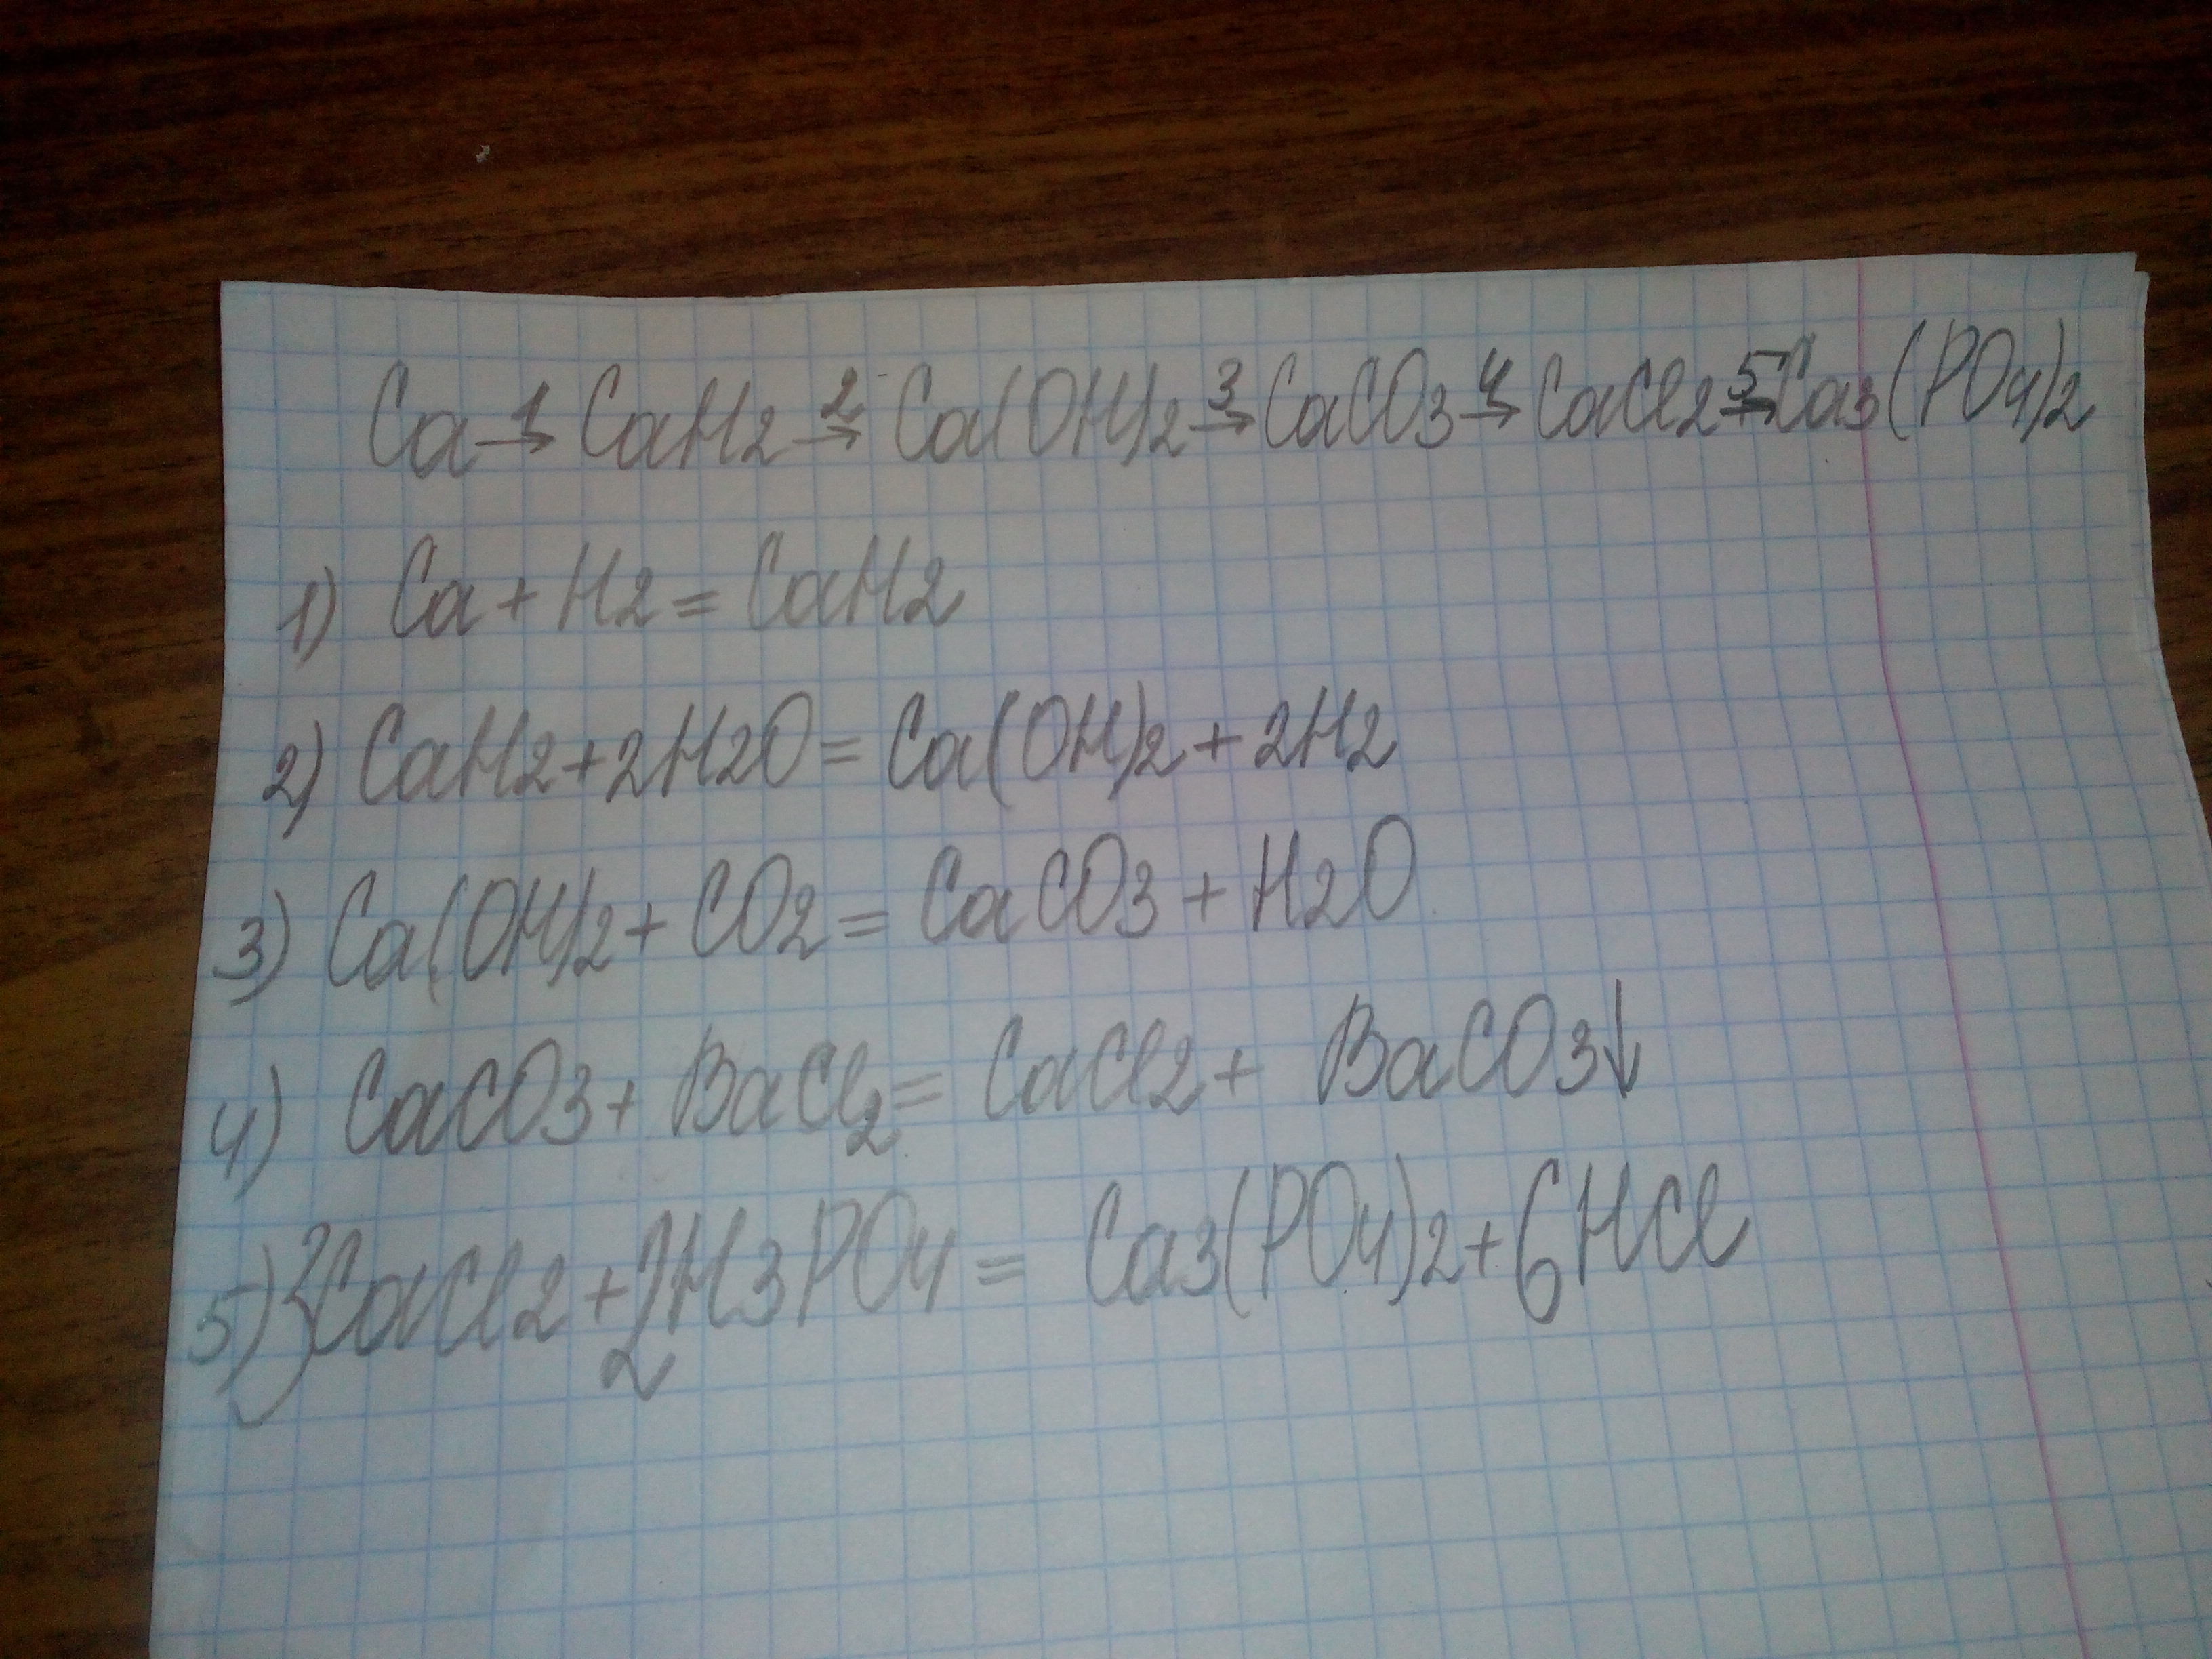 Ca 1→ CaH2 2→ Ca(OH)2 3→ CaCO3 4→ CaCl2 5→ Ca3(PO4)2
1) Ca + H2 = CaH2
2) CaH2 + 2H2O = Ca(OH)2 + 2H2
3) Ca(OH)2 + CO2 = CaCO3 + H2O
4) CaCO3 + BaCl2 = CaCl2 + BaCO3↓
5) 3CaCl2 + 2H3PO4 = Ca3(PO4)2 + 6HCl